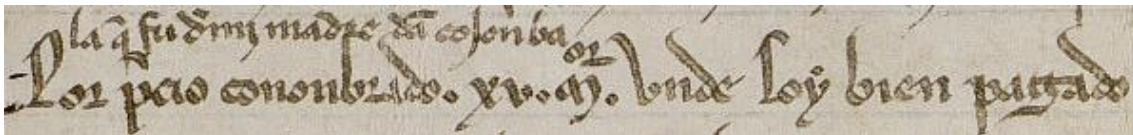 la q̃ fu d̃ mj madre dã colonba
Por p̃cio connonbrado. xv. mr̃. vnde soy bien pagado